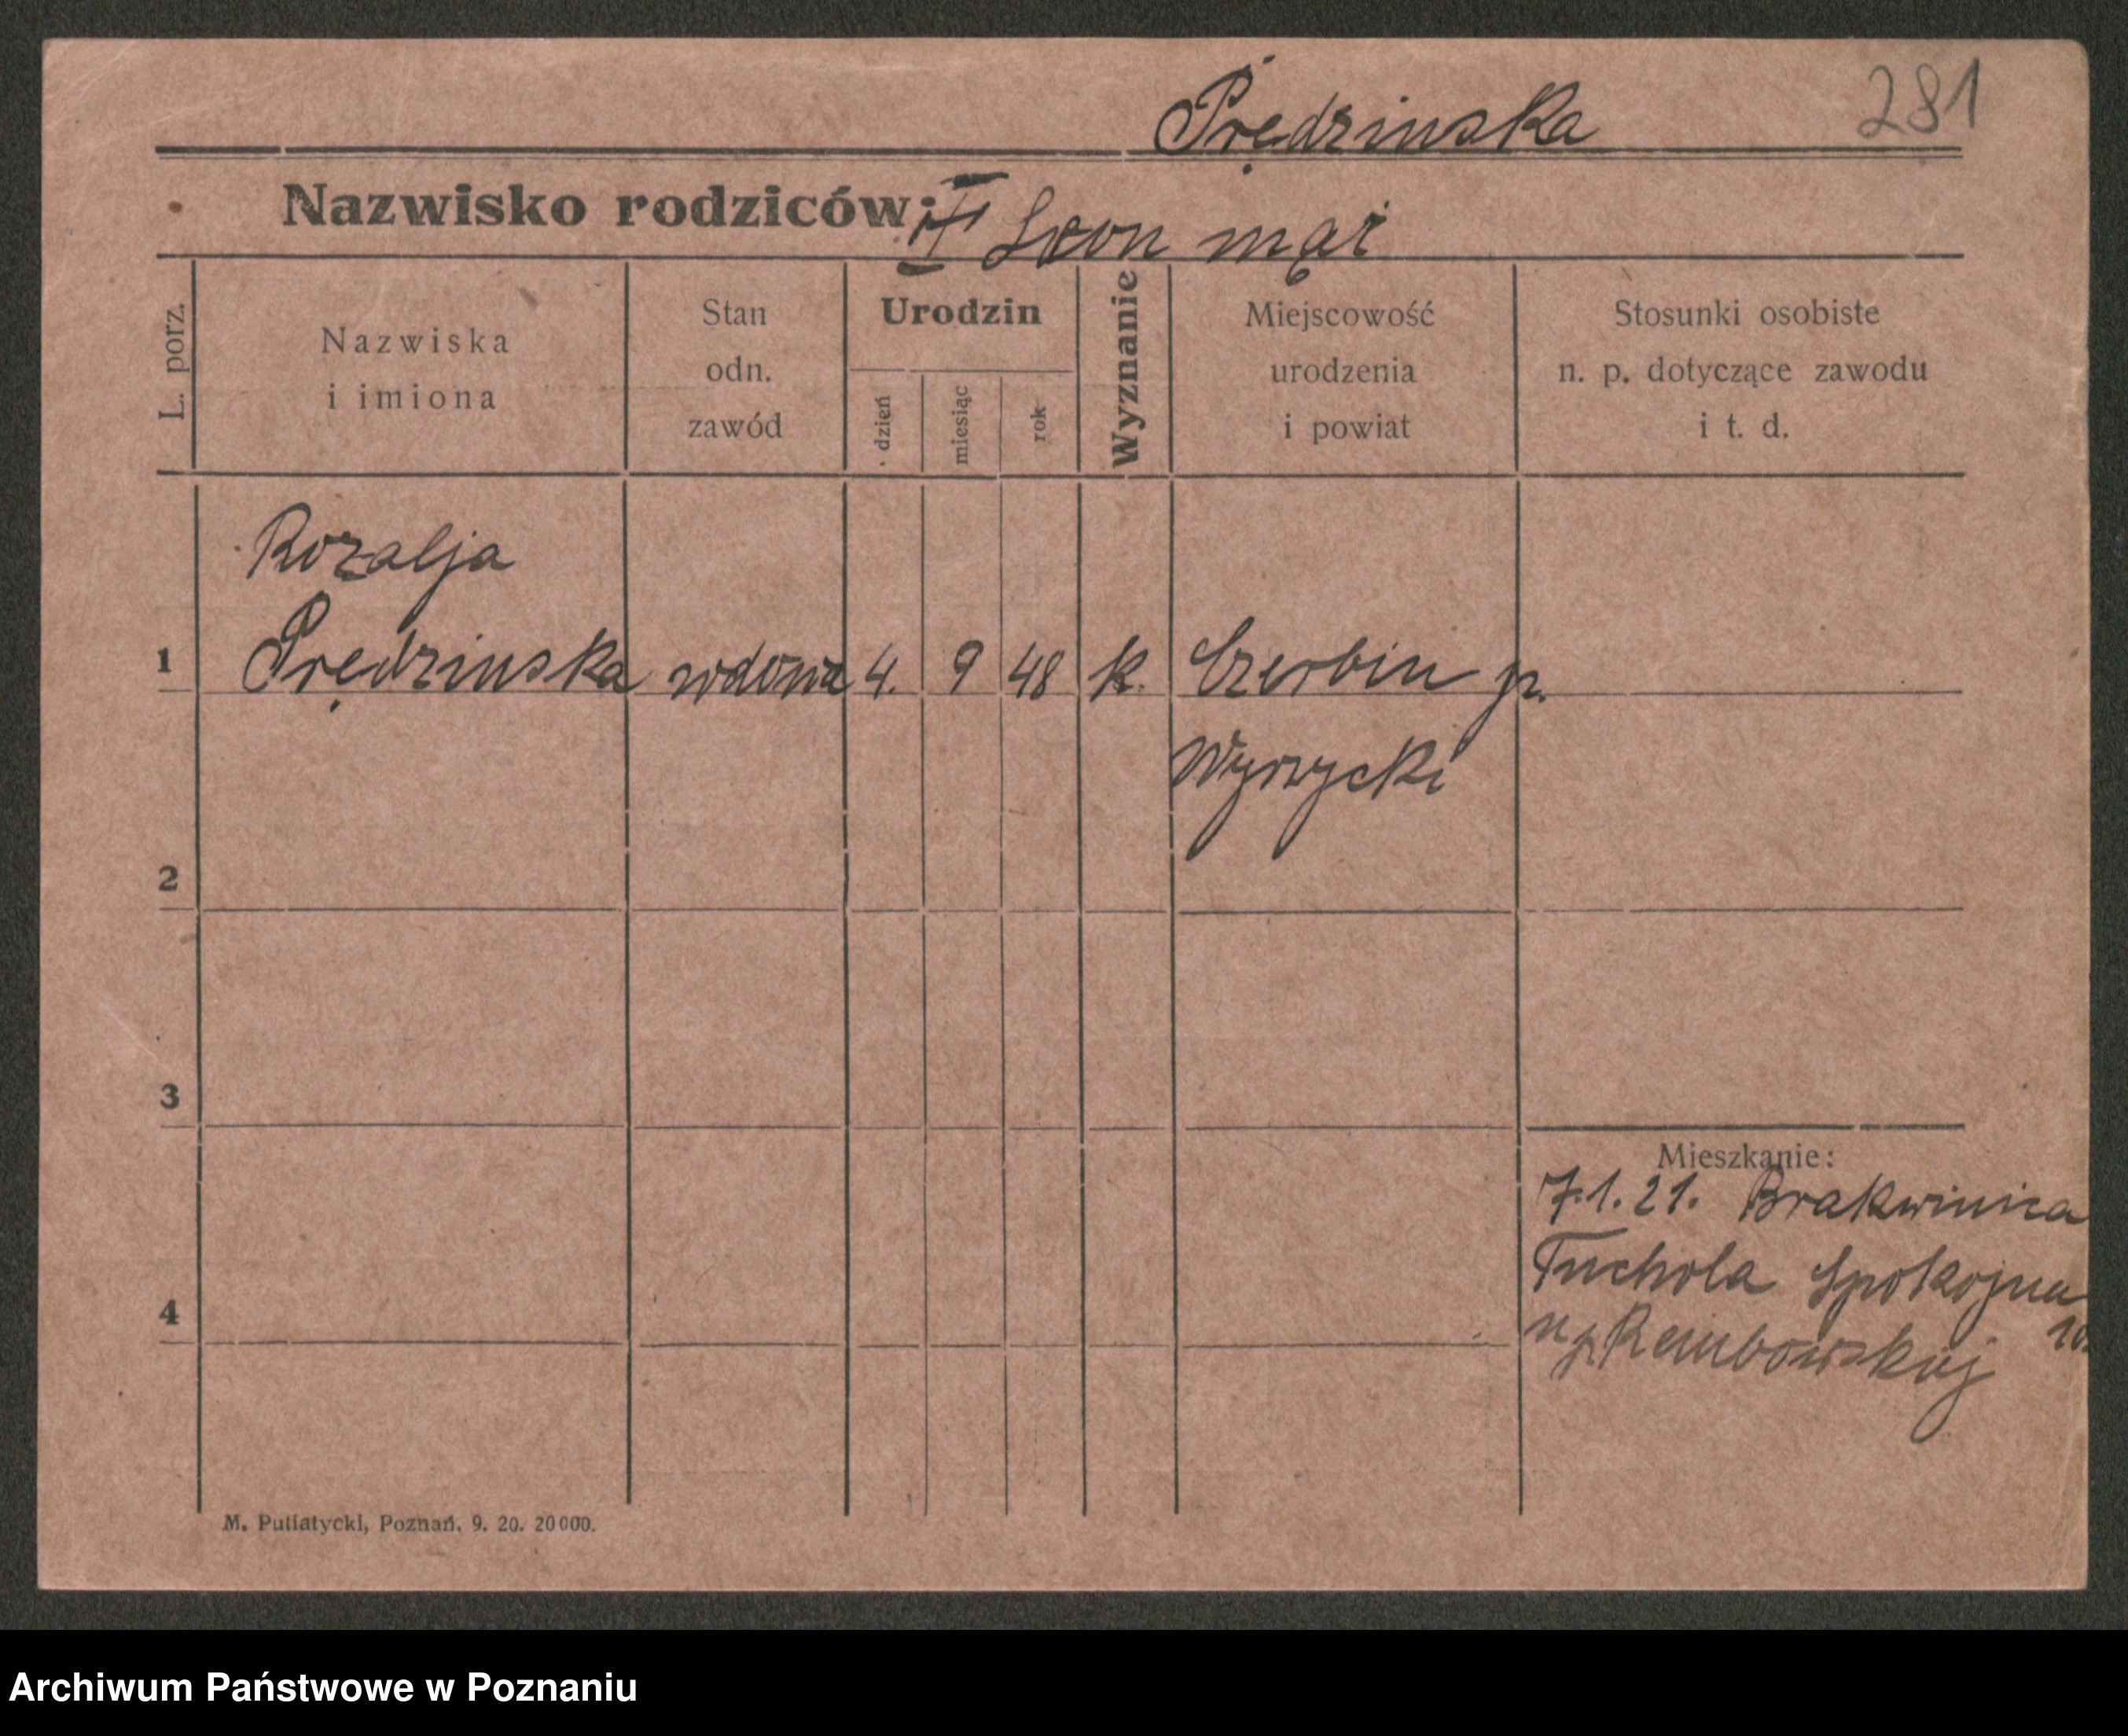 Prędzinska 281
Nazwisko rodziców: Leon mąż
L. porz.
Nazwiska
i imiona
Stan
odn.
zawód
Urodzin
dzień
miesiąc
rok
Wyznanie
Miejscowość
urodzenia
i powiat
Stosunki osobiste
n. p. dotyczące zawodu
i t. d.
Rozalja
1 Prędzinska wdowa 4. 9 48 k. Czerbin p.
Wyrzycki
2
3
Mieszkanie:
7.1.21. Brakwinica
Tuchola Spokojna
4
u p Rembowskiej 10.
M. Putiatycki, Poznań. 9. 20. 20000.
Archiwum Państwowe w Poznaniu